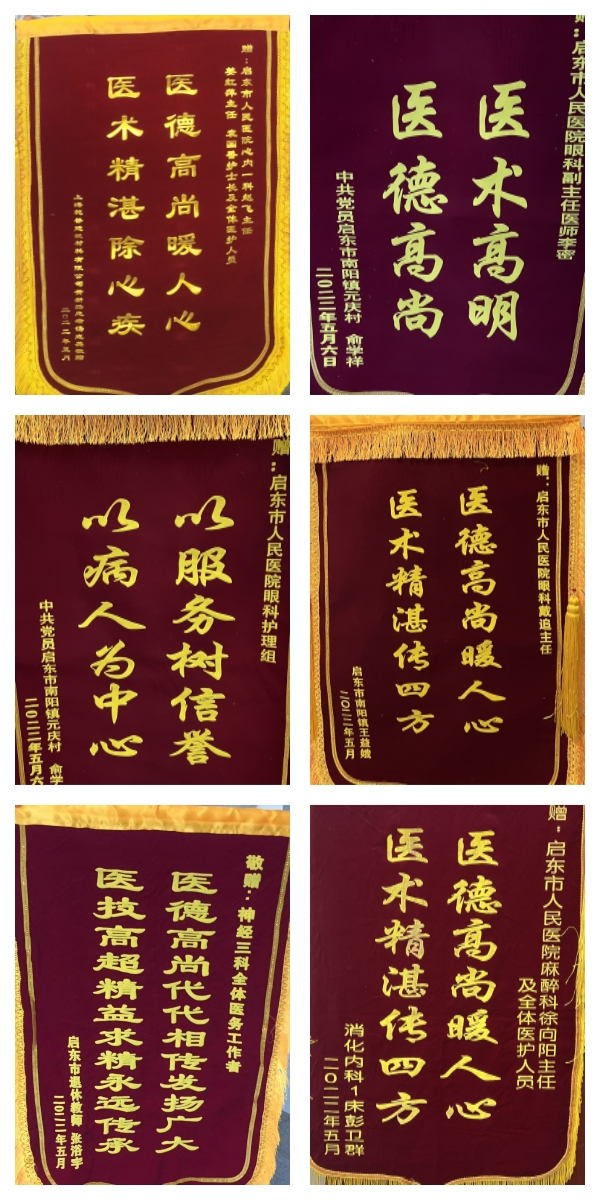 赠：启东市人民医院心内一科赵飞主任
姜红萍主任
医德高尚暖人心
医术精湛除心疾
二〇二二年五月
赠：启东市人民医院眼科副主任医师李密
医术高明
医德高尚
中共党员启东市南阳镇元庆村 俞学祥
二〇二二年五月六日
赠：启东市人民医院眼科护理组
以服务树信誉
以病人为中心
中共党员启东市南阳镇元庆村 俞学
二〇二二年五月六
赠：启东市人民医院眼科戴追主任
医德高尚暖人心
医术精湛传四方
启东市南阳镇王益娥
二〇二二年五月
敬赠：神经三科全体医务工作者
医德高尚代代相传发扬广大
医技高超精益求精永远传承
启东市退休教师 张浴宇
二〇二二年五月
赠：启东市人民医院麻醉科徐向阳主任
及全体医护人员
医德高尚暖人心
医术精湛传四方
消化内科1床彭卫群
二〇二二年五月